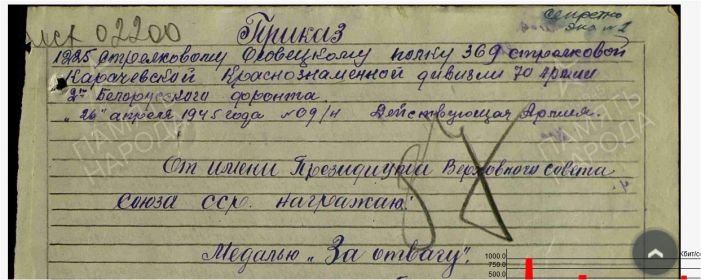 иск 02200
Приказ
секретно
экз № 2
1225 стрелковому Осовецкому полку 369 стрелковой
Карачевской Краснознаменной дивизии 70 армии
2го Белорусского фронта.
"26" апреля 1945 года №09/н Действующая Армия.
От имени Президиума Верховного совета
союза сср. награждаю:
Медалью „За отвагу".
ПАМЯТЬ НАРОДА
ПАМЯТЬ НАРОДА
1000.0
750.0
500.0
Кбит/с